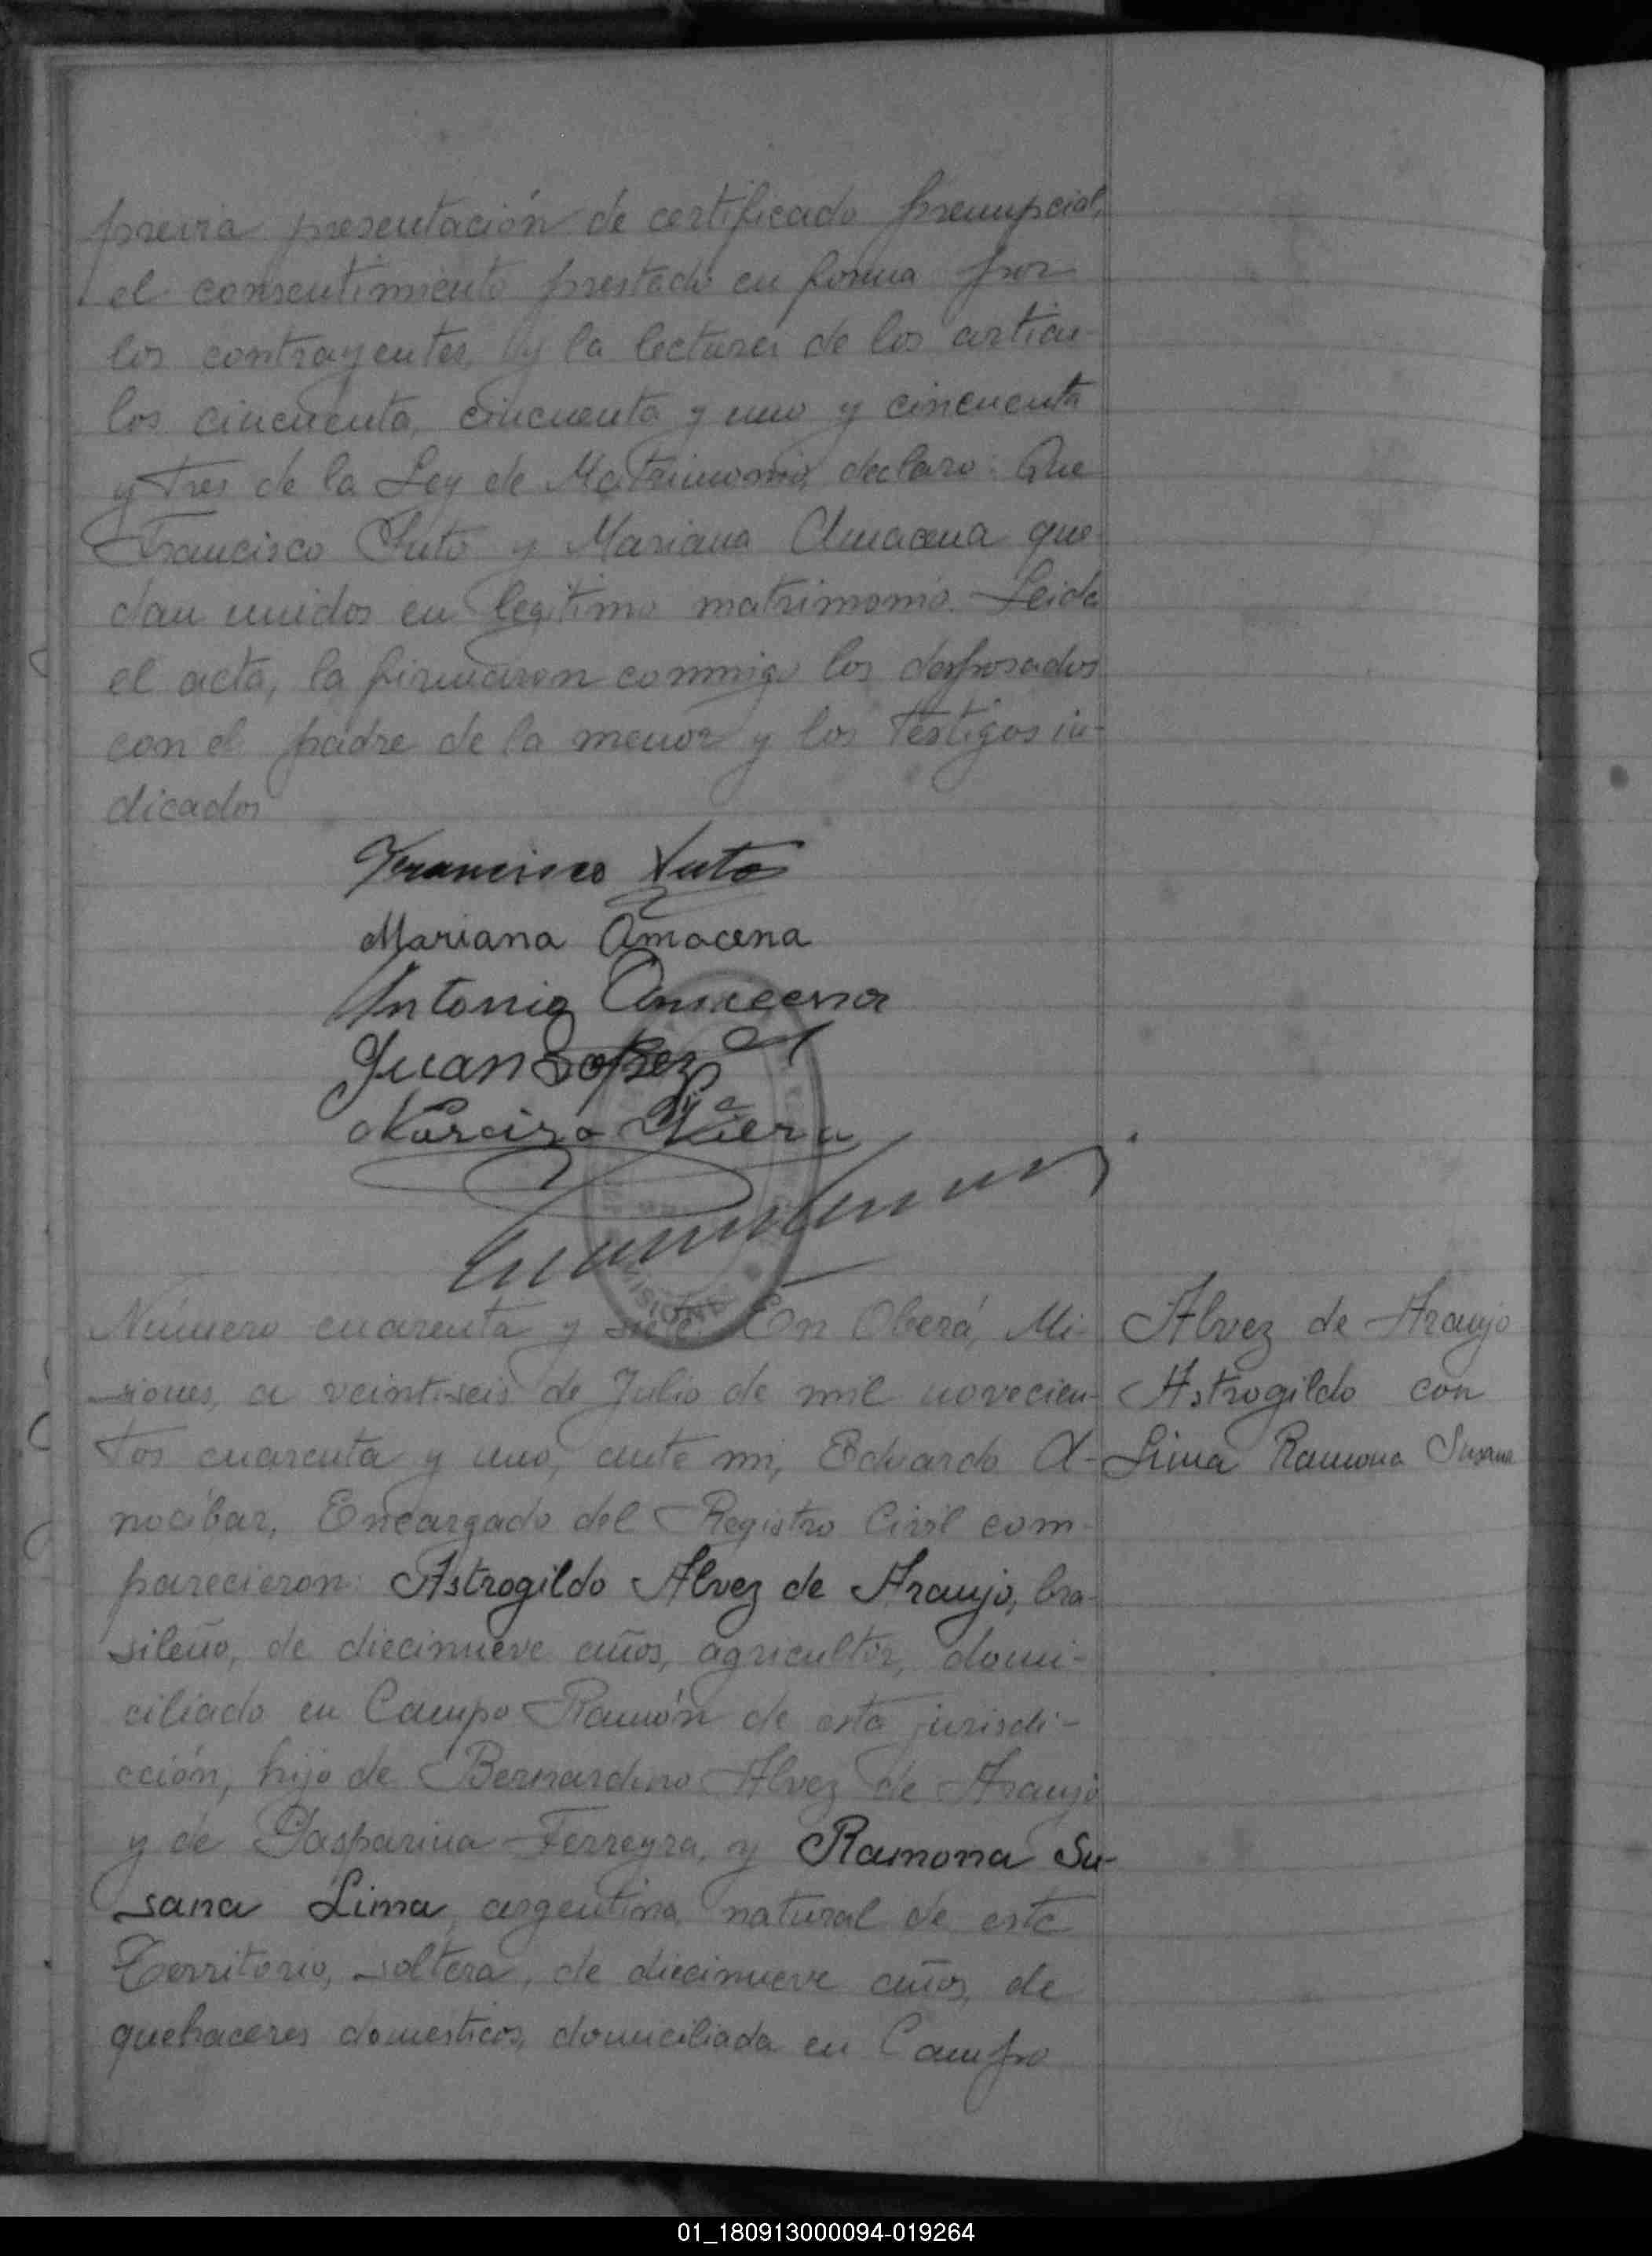 previa presentación de certificado prenupcial,
el consentimiento prestado en forma por
los contrayentes, y la lectura de los artícu-
los cincuenta, cincuenta y uno y cincuenta
y tres de la Ley de Matrimonio, declaro: Que
Francisco y Mariana Amacena que-
dan unidos en legítimo matrimonio. Leida
el acta, la firmaron conmigo los desposados
con el padre de la menor y los testigos in-
dicados
Francisco
Mariana Amacena
Antonio Amacena
Juan Lopez
Narcizo Viera
Número cuarenta y siete. En Oberá, Mi-
siones, a veintiseis de Julio de mil novecien-
tos cuarenta y uno, ante mi, Eduardo A-
nocíbar, Encargado del Registro Civil com-
parecieron: Astrogildo Alvez de Araujo, bra-
sileño, de diecinueve años, agricultor, domi-
ciliado en Campo Ramón de esta jurisdi-
cción, hijo de Bernardino Alvez de Araujo
y de Gasparina Ferreyra, y Ramona Su-
sana Lima, argentina, natural de este
Territorio, soltera, de diecinueve años, de
quehaceres domesticos, domiciliada en Campo
Alvez de Araujo
Astrogildo con
Lima Ramona Susana
MISIONES
01_180913000094-019264